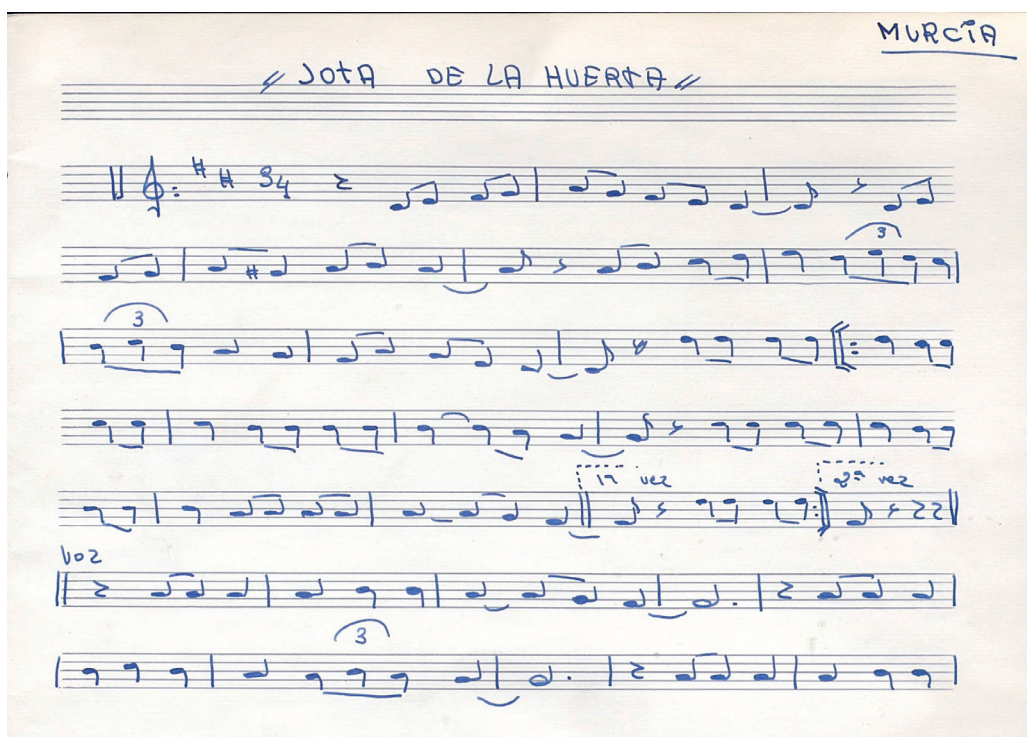 MURCIA
" JOTA DE LA HUERTA "
3/4
3
3
1ª vez 2ª vez
voz
3